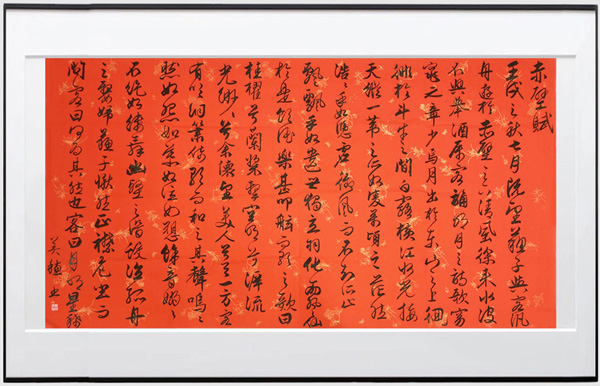 赤壁賦
壬戌之秋七月既望蘇子與客泛
舟遊於赤壁之下清風徐來水波
不興舉酒屬客誦明月之詩歌窈
窕之章少焉月出於東山之上徘
徊於斗牛之間白露橫江水光接
天縱一葦之所如凌萬頃之茫然
浩浩乎如憑虛御風而不知所止
飄飄乎如遺世獨立羽化而登仙
於是飲酒樂甚扣舷而歌之歌曰
桂櫂兮蘭槳擊空明兮泝流
光渺渺兮余懷望美人兮天一方客
有吹洞簫者倚歌而和之其聲嗚嗚
然如怨如慕如泣如訴餘音嫋嫋
不絕如縷舞幽壑之潛蛟泣孤舟
之嫠婦蘇子愀然正襟危坐而
問客曰何為其然也客曰月明星稀